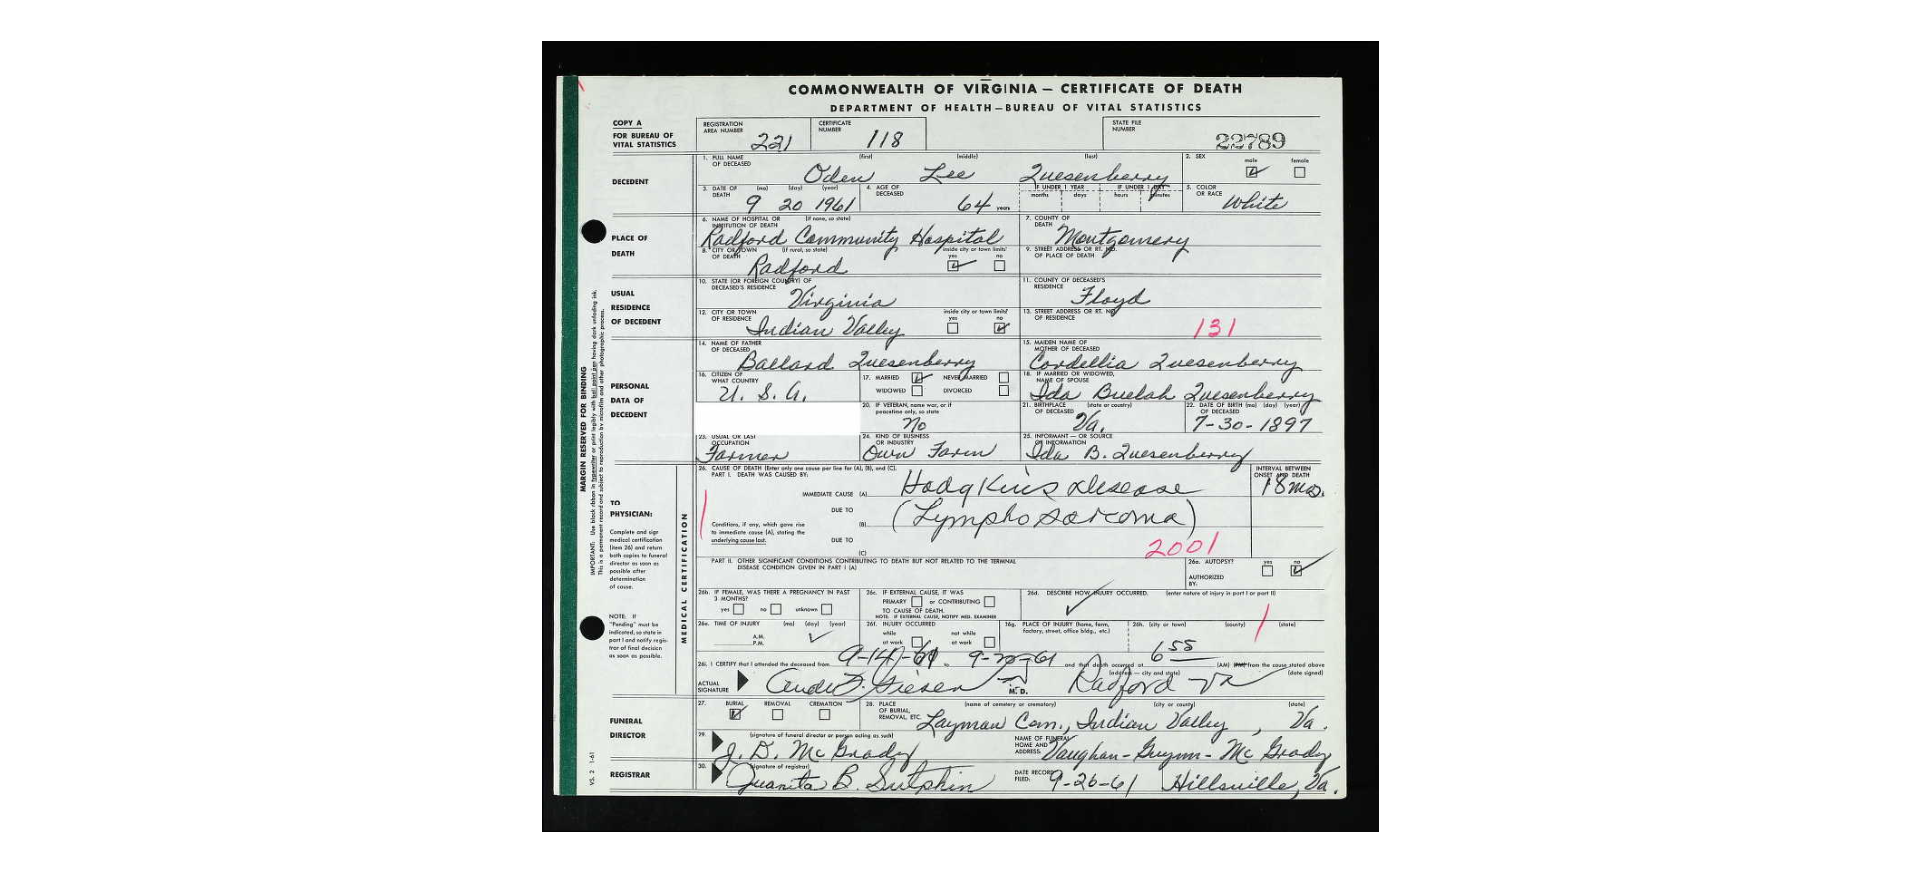 COMMONWEALTH OF VIRGINIA — CERTIFICATE OF DEATH
DEPARTMENT OF HEALTH — BUREAU OF VITAL STATISTICS
COPY A
FOR BUREAU OF VITAL STATISTICS
REGISTRATION AREA NUMBER 221
CERTIFICATE NUMBER 118
STATE FILE NUMBER 22789
DECEDENT
1. FULL NAME OF DECEASED (first) (middle) (last)
Oden Lee Quesenberry
2. SEX male female
3. DATE OF DEATH (mo) (day) (year) 9 20 1961
4. AGE OF DECEASED 64 years
IF UNDER 1 YEAR months days IF UNDER 1 DAY hours minutes
5. COLOR OR RACE White
PLACE OF DEATH
6. NAME OF HOSPITAL OR INSTITUTION OF DEATH (if none, so state)
Radford Community Hospital
7. COUNTY OF DEATH Montgomery
8. CITY OR TOWN OF DEATH (if rural, so state) Radford
inside city or town limits? yes no
9. STREET ADDRESS OR RT. NO. OF PLACE OF DEATH
USUAL RESIDENCE OF DECEDENT
10. STATE (OR FOREIGN COUNTRY) OF DECEASED'S RESIDENCE Virginia
11. COUNTY OF DECEASED'S RESIDENCE Floyd
12. CITY OR TOWN OF RESIDENCE Indian Valley
inside city or town limits? yes no
13. STREET ADDRESS OR RT. NO. OF RESIDENCE
131
PERSONAL DATA OF DECEDENT
14. NAME OF FATHER OF DECEASED Ballard Quesenberry
15. MAIDEN NAME OF MOTHER OF DECEASED Cordellia Quesenberry
16. CITIZEN OF WHAT COUNTRY U. S. A.
17. MARRIED NEVER MARRIED WIDOWED DIVORCED
18. IF MARRIED OR WIDOWED, NAME OF SPOUSE Ida Buelah Quesenberry
20. IF VETERAN, name war, or if peacetime only, so state No
21. BIRTHPLACE OF DECEASED (state or country) Va.
22. DATE OF BIRTH OF DECEASED (mo) (day) (year) 7-30-1897
23. USUAL OR LAST OCCUPATION Farmer
24. KIND OF BUSINESS OR INDUSTRY Own Farm
25. INFORMANT — OR SOURCE OF INFORMATION Ida B. Quesenberry
MARGIN RESERVED FOR BINDING
MEDICAL CERTIFICATION
TO PHYSICIAN:
Complete and sign medical certification (item 26) and return both copies to funeral director as soon as possible after determination of cause.
NOTE: If "Pending" must be indicated, so state in part I and notify registrar of final decision as soon as possible.
26. CAUSE OF DEATH (Enter only one cause per line for (A), (B), and (C).
PART I. DEATH WAS CAUSED BY:
INTERVAL BETWEEN ONSET AND DEATH
IMMEDIATE CAUSE (A) Hodgkin's disease 18 mo.
DUE TO (B) (Lympho sarcoma)
Conditions, if any, which gave rise to immediate cause (A), stating the underlying cause last.
DUE TO (C)
2001
PART II. OTHER SIGNIFICANT CONDITIONS CONTRIBUTING TO DEATH BUT NOT RELATED TO THE TERMINAL DISEASE CONDITION GIVEN IN PART I (A)
26a. AUTOPSY? yes no
AUTHORIZED BY:
26b. IF FEMALE, WAS THERE A PREGNANCY IN PAST 3 MONTHS?
yes no unknown
26c. IF EXTERNAL CAUSE, IT WAS PRIMARY or CONTRIBUTING TO CAUSE OF DEATH.
NOTE: IF EXTERNAL CAUSE, NOTIFY MED. EXAMINER
26d. DESCRIBE HOW INJURY OCCURRED. (enter nature of injury in part I or part II)
26e. TIME OF INJURY (mo) (day) (year) A.M. P.M.
26f. INJURY OCCURRED while at work not while at work
26g. PLACE OF INJURY (home, farm, factory, street, office bldg., etc.)
26h. (city or town) (county) (state)
26i. I CERTIFY that I attended the deceased from 9-14-61 to 9-20-61 and that death occurred at 6 55 (AM) from the cause stated above
ACTUAL SIGNATURE M. D.
(address — city and state) (date signed)
Radford Va
FUNERAL DIRECTOR
27. BURIAL REMOVAL CREMATION
28. PLACE OF BURIAL, REMOVAL, ETC. (name of cemetery or crematory) (city or county) (state)
Layman Cem., Indian Valley, Va.
29. (signature of funeral director or person acting as such)
J. D. McGrady
NAME OF FUNERAL HOME AND ADDRESS Vaughan-Guynn-McGrady
REGISTRAR
30. (signature of registrar)
Juanita B. Sutphin
DATE RECORD FILED: 9-26-61 Hillsville, Va.
VS. 2 1-61